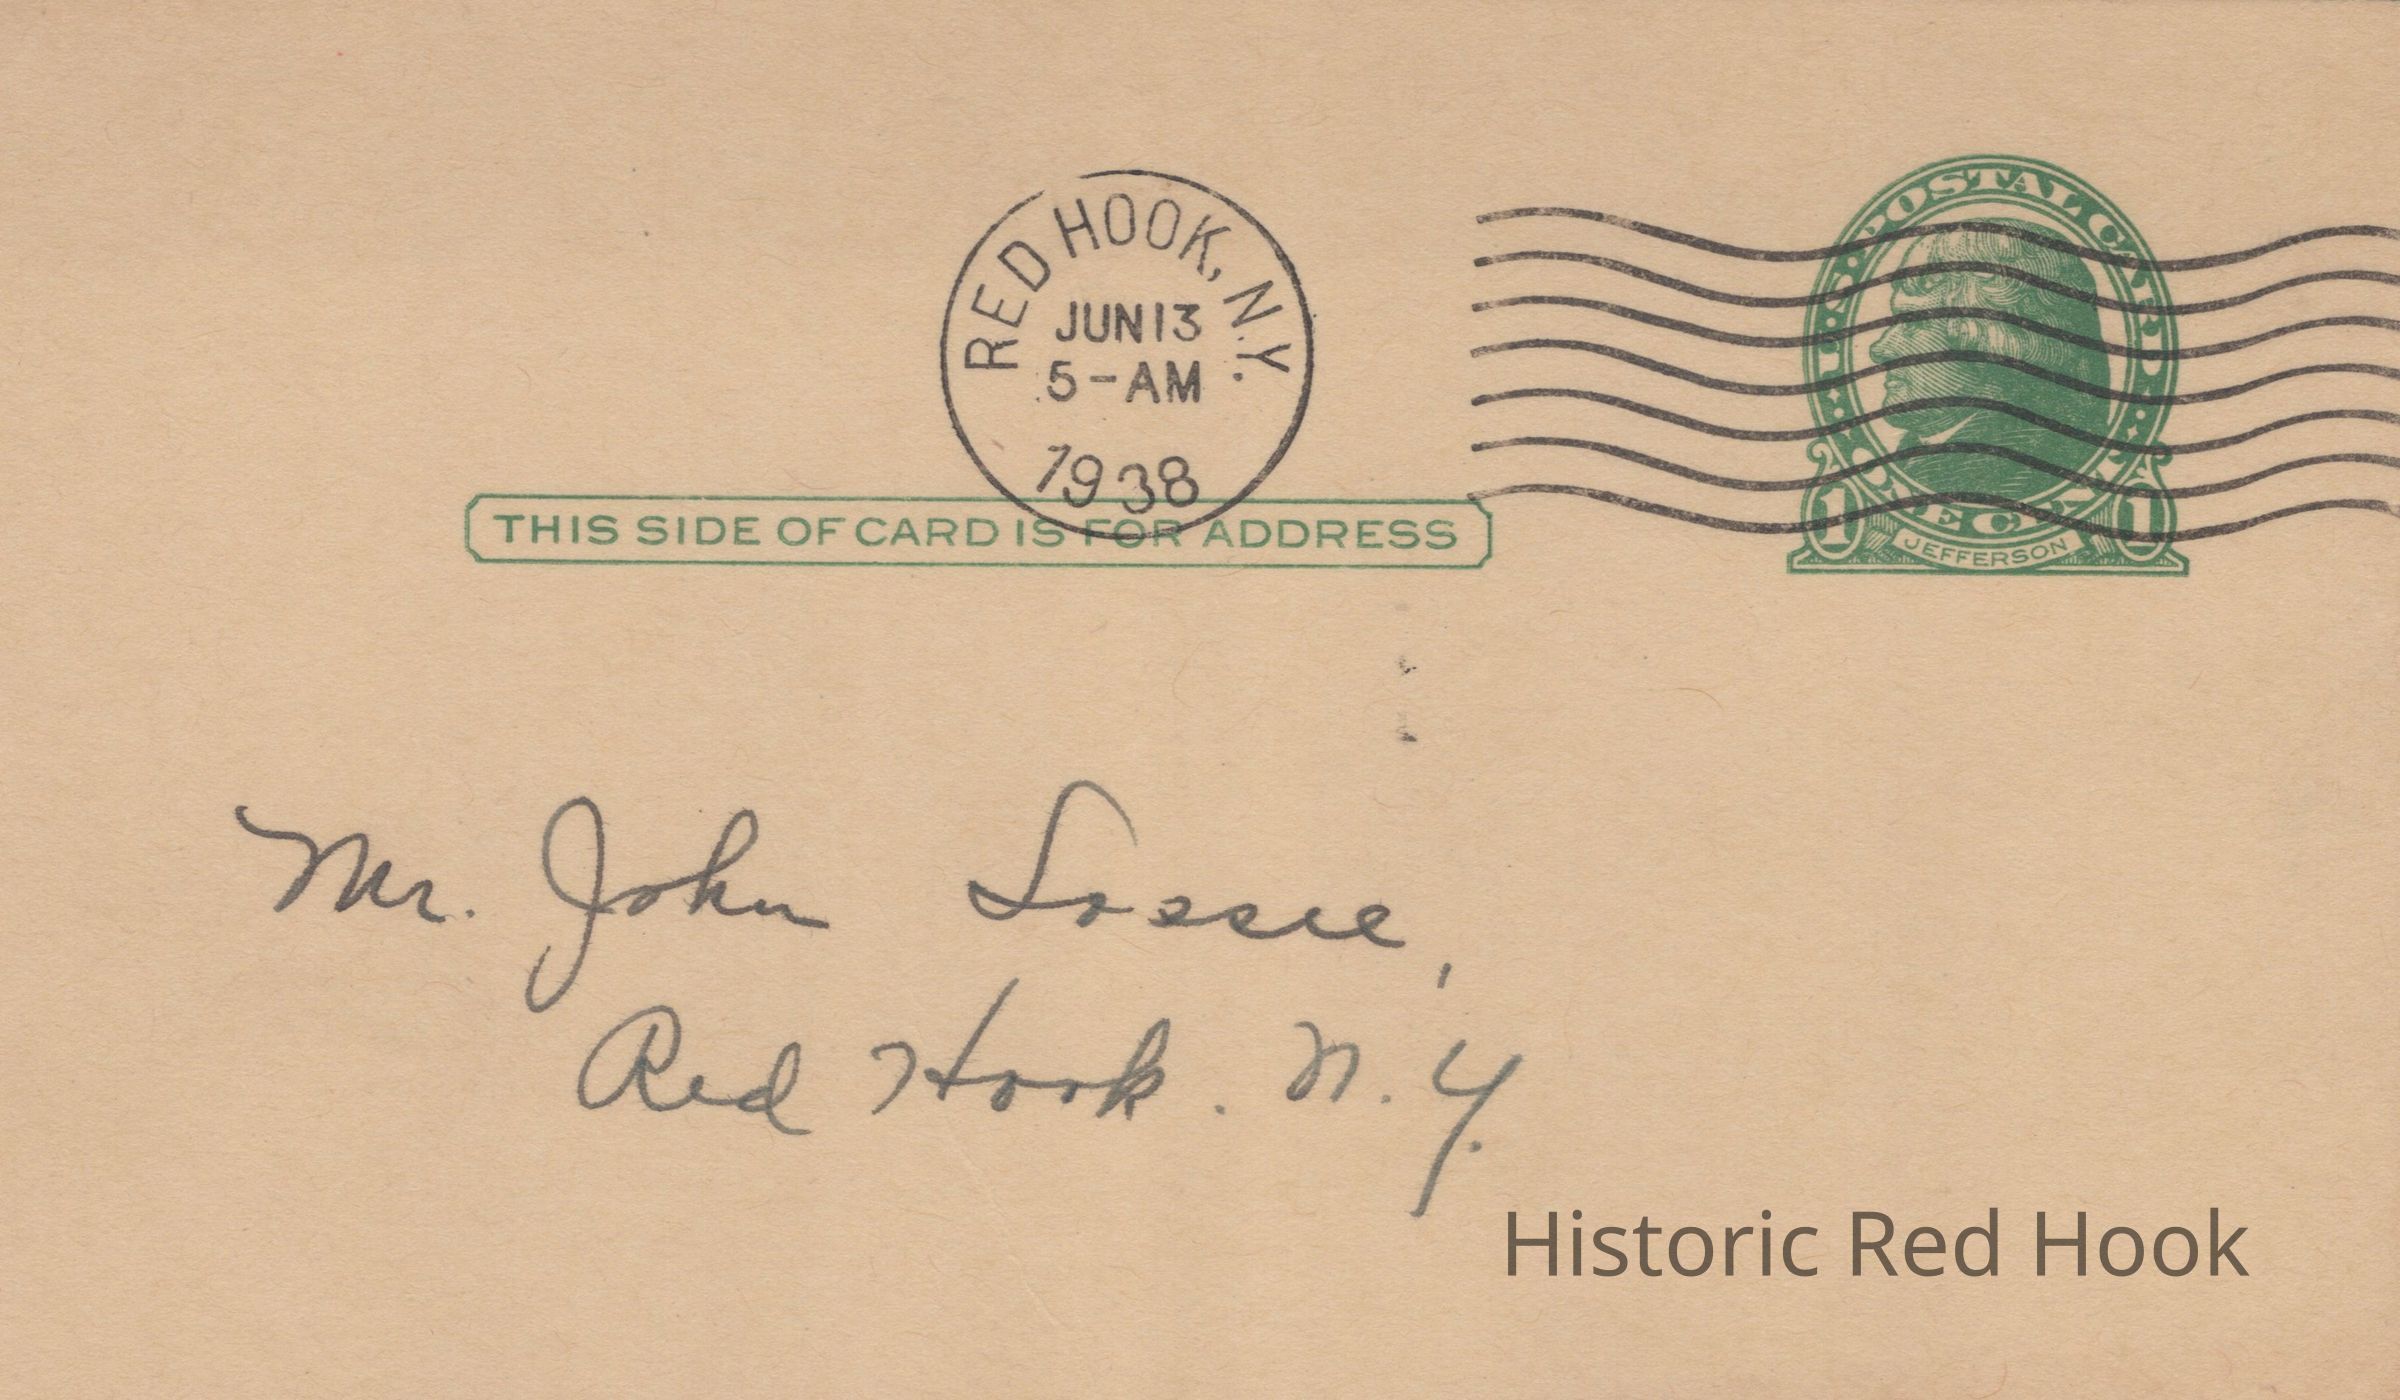 RED HOOK, N.Y.
JUN 13
5-AM
1938
U.S. POSTAL CARD
ONE CENT
1 1
JEFFERSON
THIS SIDE OF CARD IS FOR ADDRESS
Mr. John Lossie,
Red Hook. N.Y.
Historic Red Hook